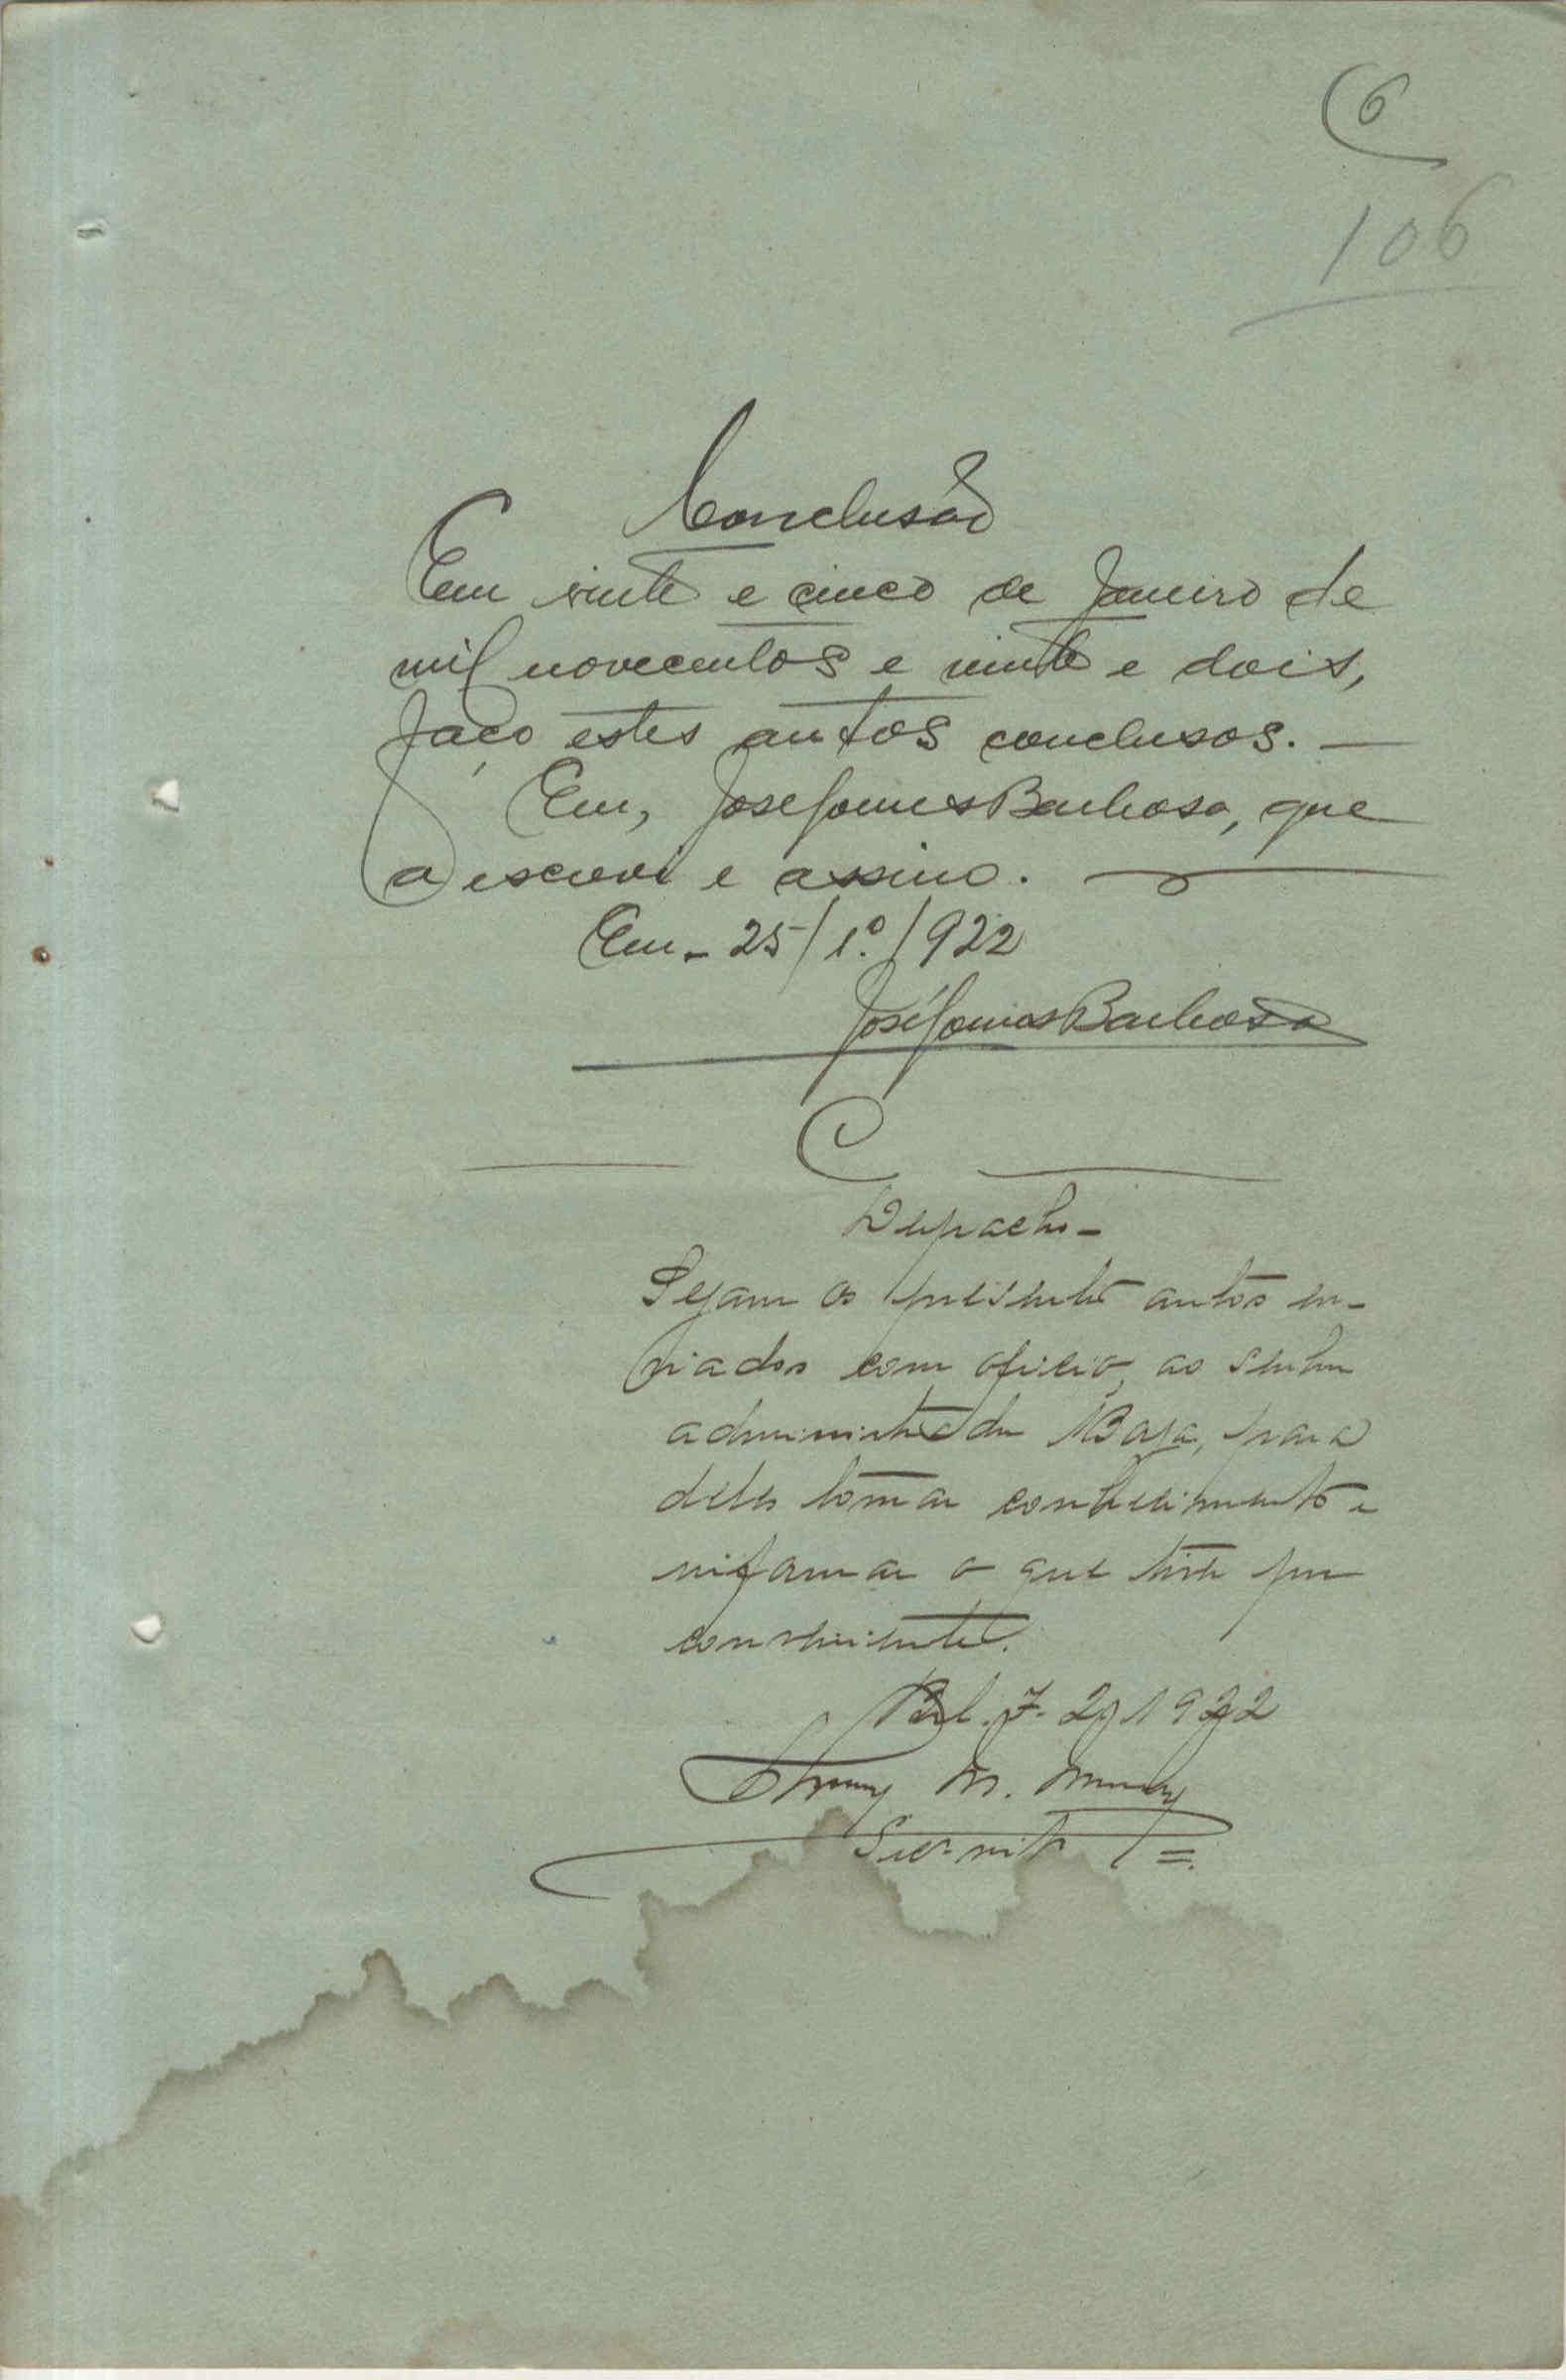 6
106
Conclusão
Em vinte e cinco de Janeiro de
mil novecentos e vinte e dois,
faço estes autos conclusos. —
Eu, José Gomes Barbosa, que
a escrevi e assino. —
Em - 25/1º/922
José Gomes Barbosa
C
Despacho -
Sejam os presentes autos en-
viados com oficio, ao senhor
administrador Baja, para
deles tomar conhecimento e
informar o que tiver por
conveniente.
7-2-1922